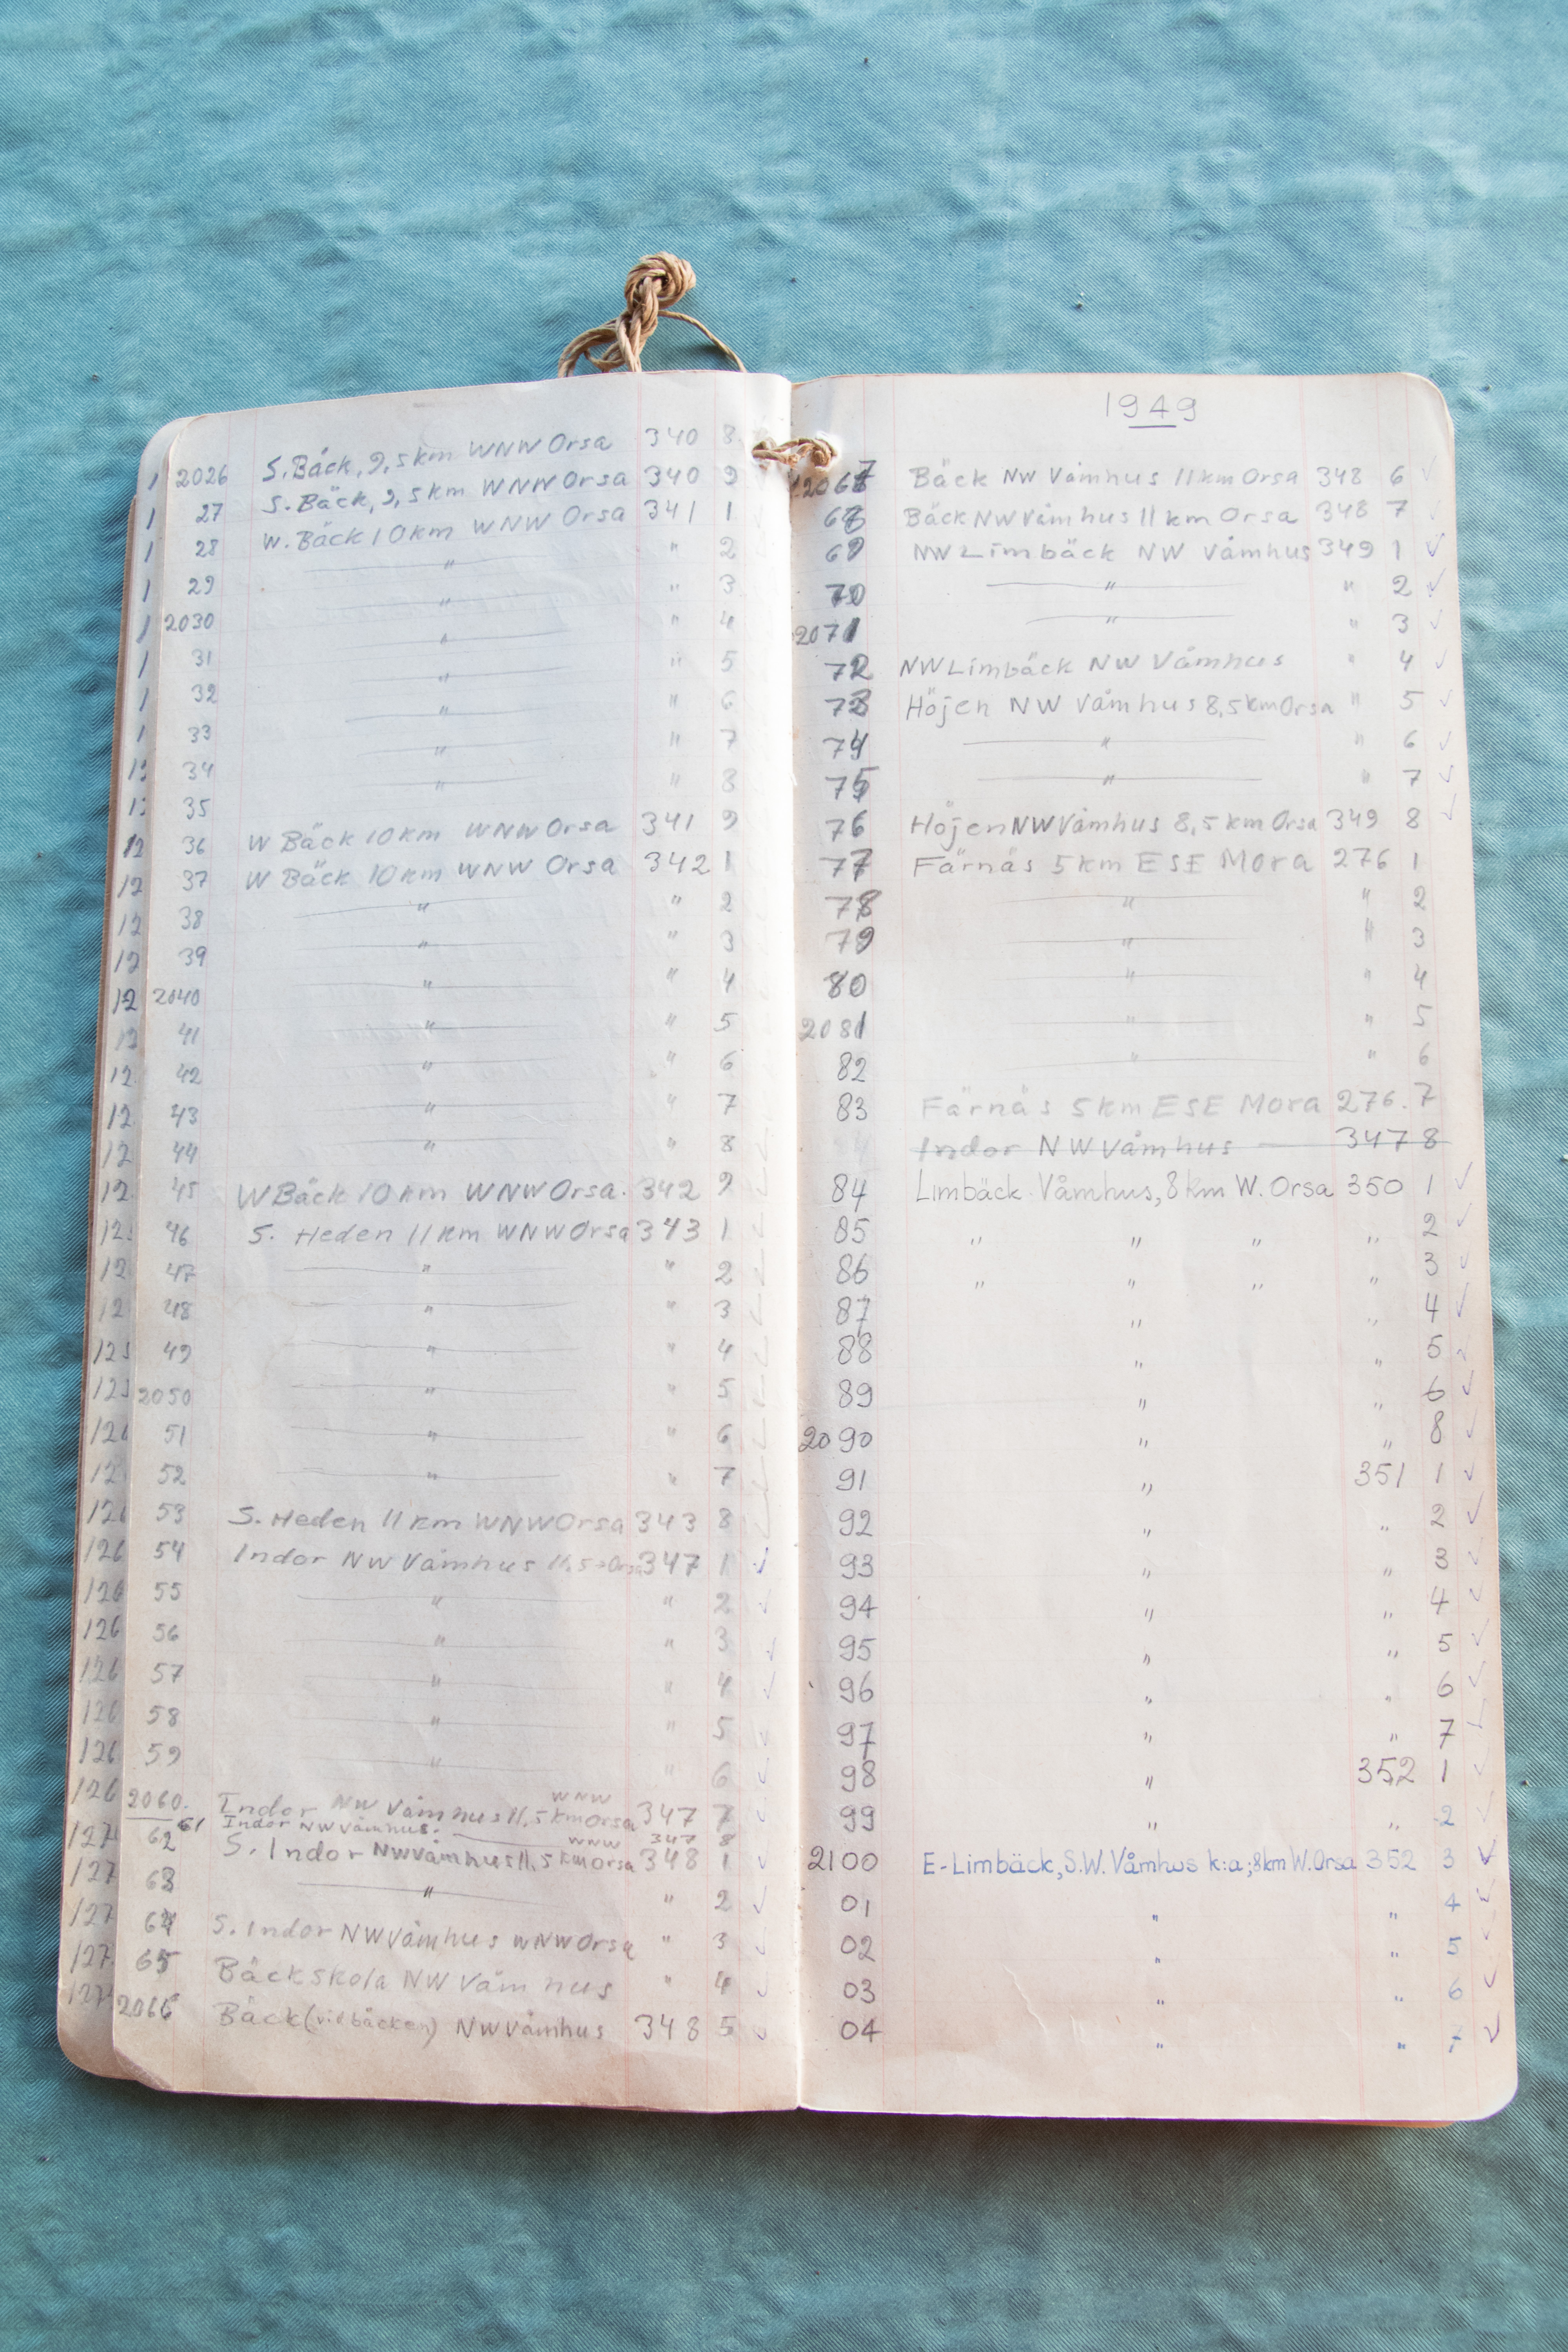 2026 S. Bäck, 9,5 km WNW Orsa 340 8
27 S. Bäck, 9,5 km WNW Orsa 340 9
28 W. Bäck 10 km WNW Orsa 341 1
29 " " 2
2030 " " 3
31 " " 4
32 " " 5
33 " " 6
34 " " 7
35 " " 8
36 W Bäck 10 km WNW Orsa 341 9
37 W Bäck 10 km WNW Orsa 342 1
38 " " 2
39 " " 3
2040 " " 4
41 " " 5
42 " " 6
43 " " 7
44 " " 8
45 W Bäck 10 km WNW Orsa. 342 9
46 S. Heden 11 km WNW Orsa 343 1
47 " " 2
48 " " 3
49 " " 4
2050 " " 5
51 " " 6
52 " " 7
53 S. Heden 11 km WNW Orsa 343 8
54 Indor NW Våmhus 11,5 Orsa 347 1
55 " " 2
56 " " 3
57 " " 4
58 " " 5
59 " " 6
2060. Indor NW Våmhus 11,5 km WNW Orsa 347 7
61 Indor NW Våmhus. 347 8
62 S. Indor NW Våmhus 11,5 km WNW Orsa 348 1
63 " " 2
64 S. Indor NW Våmhus WNW Orsa " 3
65 Bäck skola NW Våmhus " 4
2066 Bäck (vid bäcken) NW Våmhus 348 5
1949
2067 Bäck NW Våmhus 11 km Orsa 348 6 ✓
68 Bäck NW Våmhus 11 km Orsa 348 7 ✓
69 NW Limbäck NW Våmhus 349 1 ✓
70 " " 2 ✓
2071 " " 3 ✓
72 NW Limbäck NW Våmhus " 4 ✓
73 Höjen NW Våmhus 8,5 km Orsa " 5 ✓
74 " " 6 ✓
75 " " 7 ✓
76 Höjen NW Våmhus 8,5 km Orsa 349 8 ✓
77 Färnäs 5 km ESE Mora 276 1
78 " " 2
79 " " 3
80 " " 4
2081 " " 5
82 " " 6
83 Färnäs 5 km ESE Mora 276. 7
Indor NW Våmhus 347 8
84 Limbäck Våmhus, 8 km W. Orsa 350 1 ✓
85 " " " " 2 ✓
86 " " " " 3 ✓
87 " " 4 ✓
88 " " 5 ✓
89 " " 6 ✓
2090 " " 8 ✓
91 " 351 1 ✓
92 " " 2 ✓
93 " " 3 ✓
94 " " 4 ✓
95 " " 5 ✓
96 " " 6 ✓
97 " " 7 ✓
98 " 352 1 ✓
99 " " 2 ✓
2100 E-Limbäck, S.W. Våmhus k:a; 8 km W. Orsa 352 3 ✓
01 " " 4 ✓
02 " " 5 ✓
03 " " 6 ✓
04 " " 7 ✓